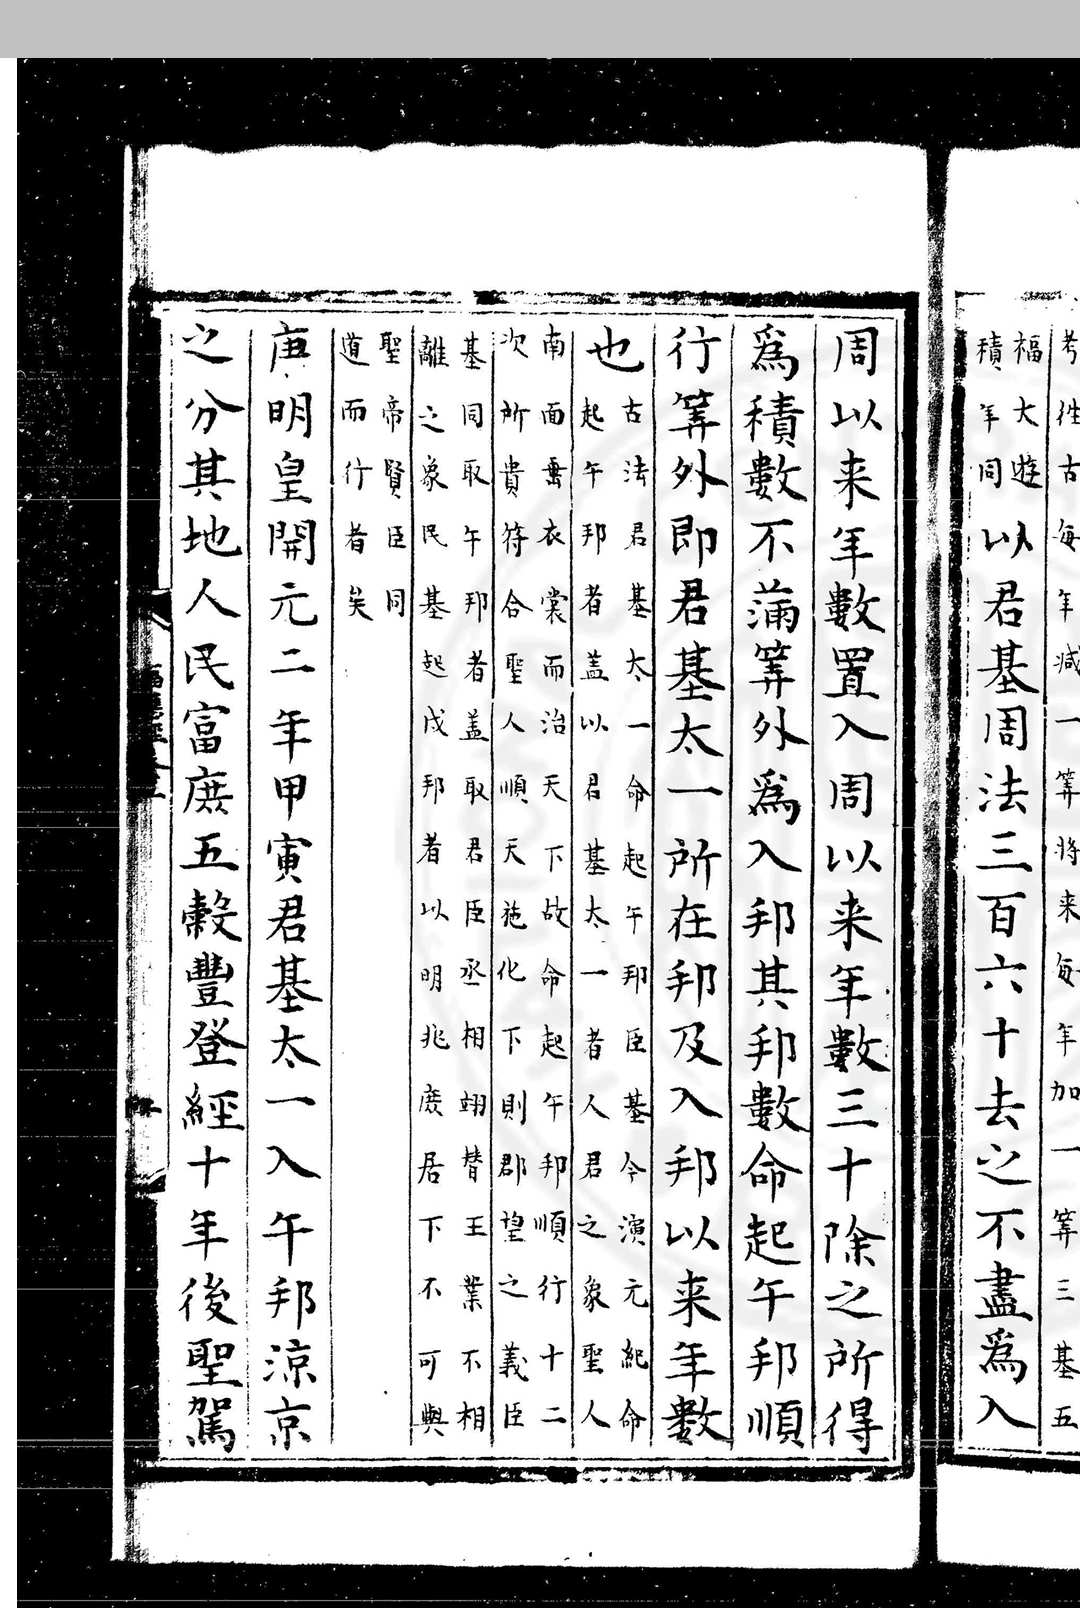 考徃古每年减一筭將来每年加一筭三基五
福大遊
積年同
以君基周法三百六十去之不盡爲入
周以来年數置入周以来年數三十除之所得
爲積數不滿筭外爲入邦其邦數命起午邦順
行筭外即君基太一所在邦及入邦以来年數
也
古法君基太一命起午邦臣基今演元紀命
起午邦者盖以君基太一者人君之象聖人
南面垂衣裳而治天下故命起午邦順行十二
次所貴符合聖人順天施化下則郡望之義臣
基同取午邦者盖取君臣丞相翊替王業不相
離之象民基起戌邦者以明兆庶居下不可與
聖帝賢臣同
道而行者矣
唐明皇開元二年甲寅君基太一入午邦涼京
之分其地人民富庶五穀豐登經十年後聖駕